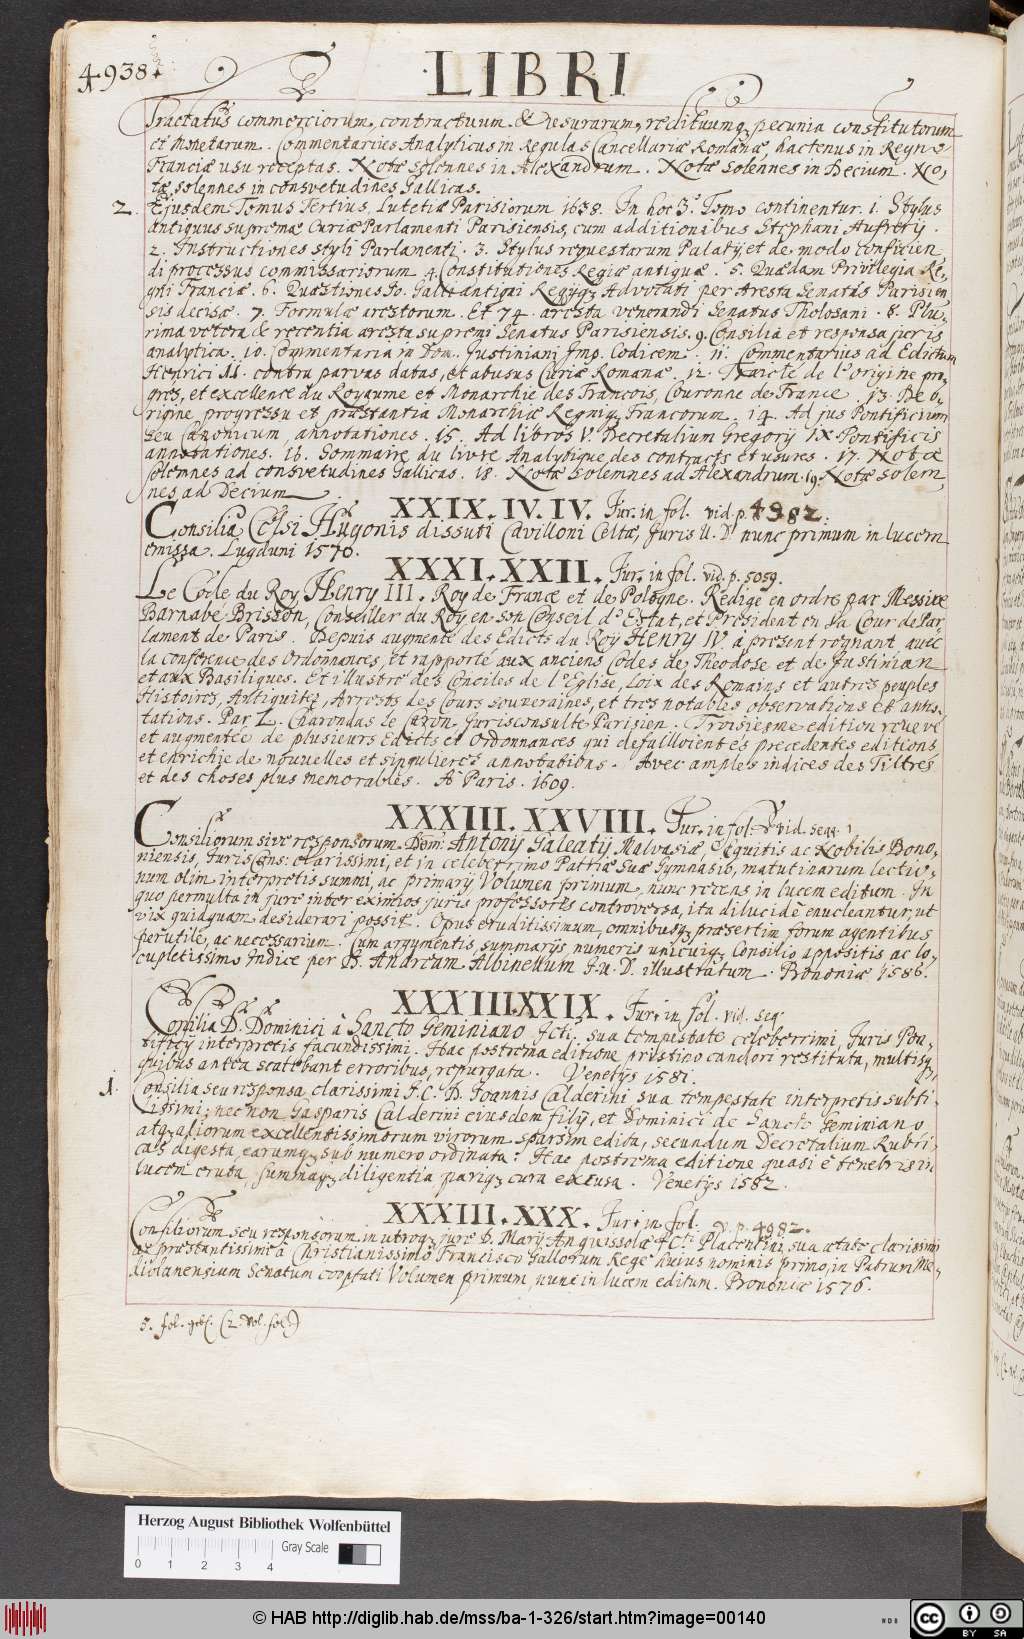 4938.
LIBRI
Tractatus commerciorum, contractuum & usurarum, redituumq; pecunia constitutorum
et Monetarum. Commentarius Analyticus in Regulas Cancellariæ Romanæ, hactenus in Regno
Franciæ usu receptas. Notæ solennes in Alexandrum. Notæ solennes in Decium. No,
tæ solennes in consvetudines Gallicas.
2. Ejusdem Tomus Tertius, Lutetiæ Parisiorum 1638. In hoc 3° Tomo continentur. 1. Stylus
antiquus supremæ Curiæ Parlamenti Parisiensis, cum additionibus Stephani Aufrerij.
2. Instructiones styli Parlamenti. 3. Stylus requestarum Palatij et de modo conficien
di processus commissariorum 4. Constitutiones Regiæ antiquæ. 5. Quædam Privilegia Re,
gni Franciæ. 6. Quæstiones Jo. Galli antiqui Regijq; Advocati per Aresta Senatus Parisien
sis decisæ. 7. Formulæ arestorum. Et 74. aresta venerandi Senatus Tholosani. 8. Plu,
rima vetera & recentia aresta supremi Senatus Parisiensis. 9. Consilia et responsa juris
analytica. 10. Commentaria in Dom. Justiniani Imp. Codicem. 11. Commentarius ad Edictum
Henrici II. contra parvas datas, et abusus Curiæ Romanæ. 12. Traicté de l'origine pro,
gres, et excellence du Royaume et Monarchie des Francois, Couronne de France. 13. De o,
rigine, progressu et præstantia Monarchiæ Regniq; Francorum. 14. Ad jus Pontificium
seu Canonicum, annotationes. 15. Ad libros V. Decretalium Gregorij IX. Pontificis
annotationes. 16. Sommaire du livre Analytique des contracts et usures. 17. Notæ
solennes ad consvetudines Gallicas. 18. Notæ solemnes ad Alexandrum. 19. Notæ solem,
nes ad Decium
XXIX. IV. IV. Jur. in fol. vid. p. 4982.
Consilia Celsi Hugonis dissuti Cavilloni Celtæ, Juris U. D. nunc primum in lucem
emissa. Lugduni 1570.
XXXI. XXII. Jur. in fol. vid. p. 5059.
Le Code du Roy Henry III. Roy de France et de Pologne. Redigé en ordre par Messire
Barnabé Brisson, Conseiller du Roy en son Conseil d'Estat, et President en sa Cour de Par
lament de Paris. Depuis augmenté des Edicts du Roy Henry IV. à present regnant, avec
la conference des Ordonnances, et rapporté aux anciens Codes de Theodose et de Justinian
et aux Basiliques. Et illustré des Conciles de l'Eglise, Loix des Romains et autres peuples
Histoires, Antiquitez, Arrests des Cours souveraines, et tres notables observations et anno,
tations. Par L. Charondas le Caron, Jurisconsulte Parisien. Troisiesme edition reveue
et augmentée de plusieurs Edicts et Ordonnances qui defailloient és precedentes editions
et enrichie de nouvelles et singulieres annotations. Avec amples indices des Tiltres
et des choses plus memorables. A Paris. 1609.
XXXIII. XXVIII. Jur. in fol. vid. seqq.
Consiliorum sive responsorum Dom. Antonij Galeatij Malvasiæ, Equitis ac Nobilis Bono,
niensis, Juris Cons: clarissimi, et in celeberrimo Patriæ suæ Gymnasio, matutinarum lectio,
num olim interpretis summi, ac primarij Volumen primum, nunc recens in lucem editum. In
quo permulta in jure inter eximios juris professores controversa, ita dilucidè enucleantur, ut
vix quidquam desiderari possit. Opus eruditissimum, omnibusq; præsertim forum agentibus
perutile, ac necessarium. Cum argumentis, summarijs numeris unicuiq; Consilio appositis ac lo,
cupletissimo Indice per D. Andream Albinellum J. U. D. illustratum. Bononiæ 1586.
XXXIII. XXIX. Jur. in fol. vid. seq.
Consilia D. Dominici à Sancto Geminiano Jcti, sua tempestate celeberrimi, Juris Pon,
tificij interpretis facundissimi. Hac postrema editione pristino candori restituta, multisq;
quibus antea scatebant erroribus, repurgata. Venetijs 1581.
1. Consilia seu responsa clarissimi J. C. D. Joannis Calderini sua tempestate interpretis subti,
lissimi; nec non Gasparis Calderini eiusdem filij, et Dominici de Sancto Geminiano,
atq; aliorum excellentissimorum virorum sparsim edita, secundum Decretalium Rubri,
cas digesta, earumq; sub numero ordinata. Hac postrema editione quasi è tenebris in
lucem eruta, summaq; diligentia pariq; cura excusa. Venetijs 1582.
XXXIII. XXX. Jur. in fol. v. p. 4982.
Consiliorum seu responsorum in utroq; jure D. Marij Anguissolæ JCti Placentini, sua ætate clarissimi
ac præstantissimi à Christianissimo Francisco Gallorum Rege huius nominis primo, in Patrum Me,
diolanensium Senatum cooptati Volumen primum, nunc in lucem editum. Bononiæ 1576.
5. fol. geb. (2 Vol. fol.)
Herzog August Bibliothek Wolfenbüttel
Gray Scale
0 1 2 3 4
© HAB http://diglib.hab.de/mss/ba-1-326/start.htm?image=00140
WDB
cc BY SA